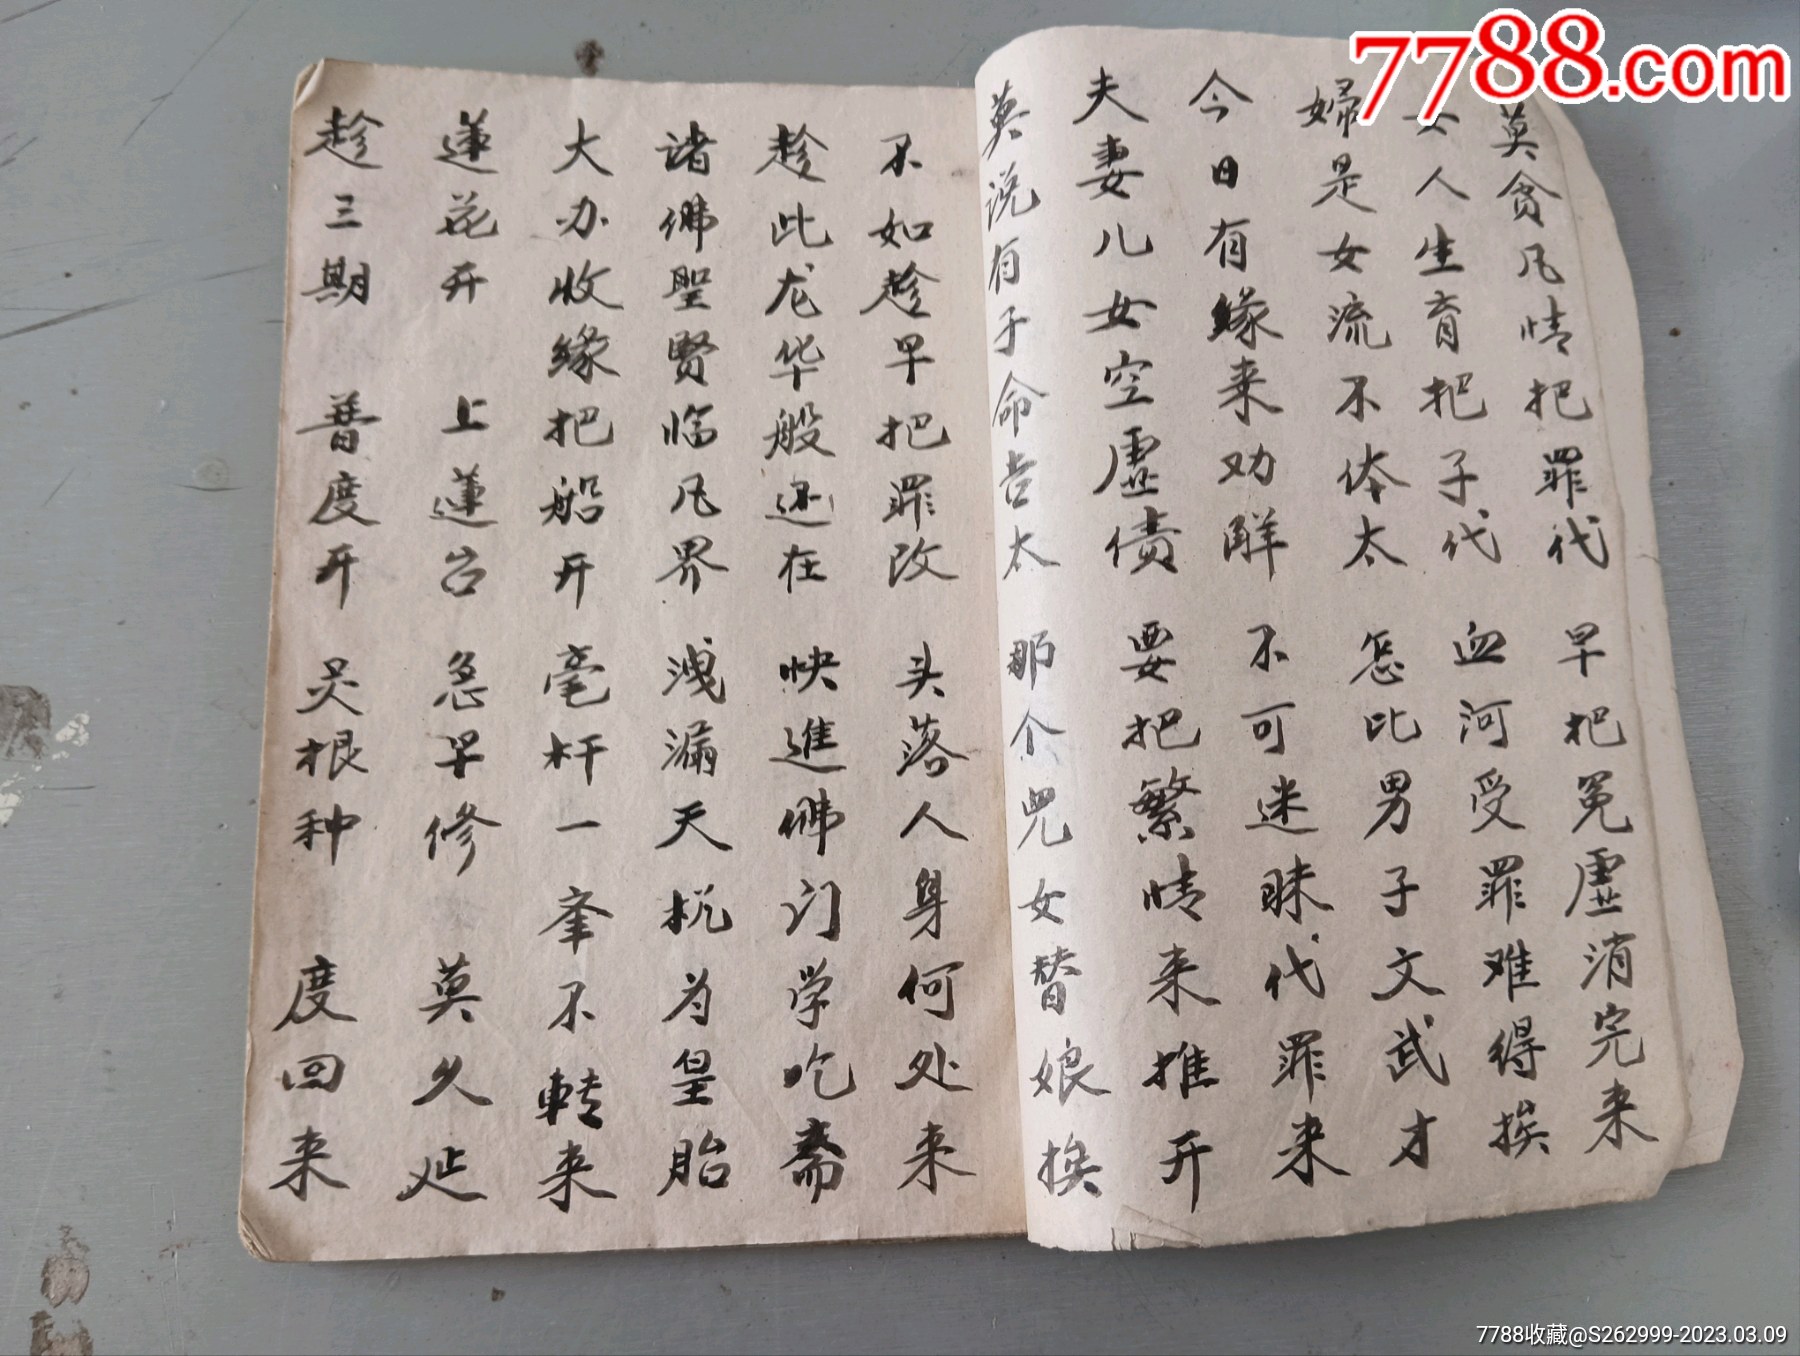 7788.com
莫贪凡情把罪代 早把冤虚消完来
女人生育把子代 血河受罪难得挨
婦是女流不体太 怎比男子文武才
今日有缘来劝解 不可迷昧代罪来
夫妻儿女空虚债 要把繁情来推开
莫说有子命吉太 那个兒女替娘挨
不如趁早把罪改 头落人身何处来
趁此龙华般还在 快進佛门学吃斋
诸佛聖賢临凡界 洩漏天机为皇胎
大办收缘把船开 毫杆一峯不轉来
莲花开 上蓮台 急早修 莫久延
趁三期 普度开 灵根种 度回来
7788收藏@S262999-2023.03.09